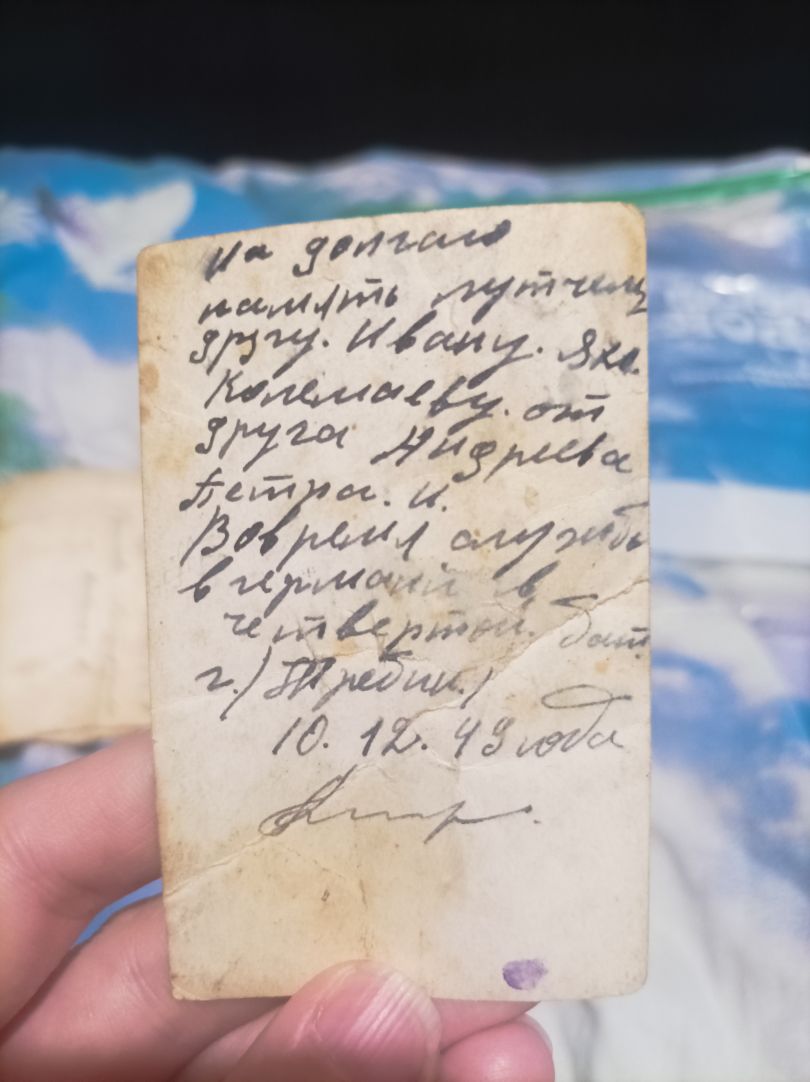 На долгаю
память лутчему
другу. Ивану. Яко.
Колемаеву. от
друга Андреева
Петра. И.
Вовремя службы
в германи в
четвертой. бат.
г. /Требин./
10. 12. 49 года